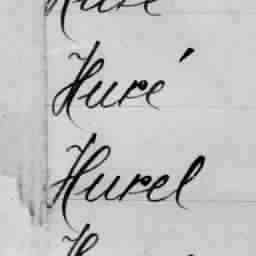 Huré
Hurel